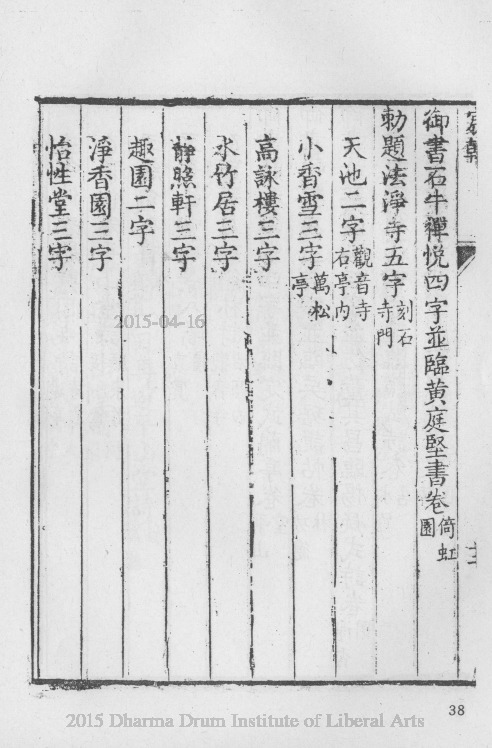 御書石牛禪悅四字並臨黃庭堅書卷 倚虹園
勅題法淨寺五字 刻石寺門
天池二字 觀音寺右亭內
小香雪三字 萬松亭
高詠樓三字
水竹居三字
靜照軒三字
趣園二字
淨香園三字
怡性堂三字
2015-04-16
38
2015 Dharma Drum Institute of Liberal Arts